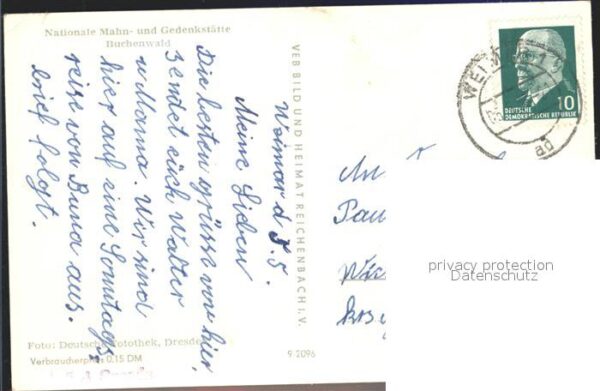 Nationale Mahn- und Gedenkstätte
Buchenwald
Weimar d 3.5.
Meine Lieben
Die besten grüsse von hier,
sendet euch Walter
u Mama. Wir sind
hier auf eine Sonntags
reise von Buna aus.
brief folgt.
Foto: Deutsche Fotothek, Dresden
Verbraucherpreis 0,15 DM
VEB BILD UND HEIMAT REICHENBACH I. V.
9 2096
WEIM
DEUTSCHE
DEMOKRATISCHE REPUBLIK
10
An
Pau
privacy protection
Datenschutz